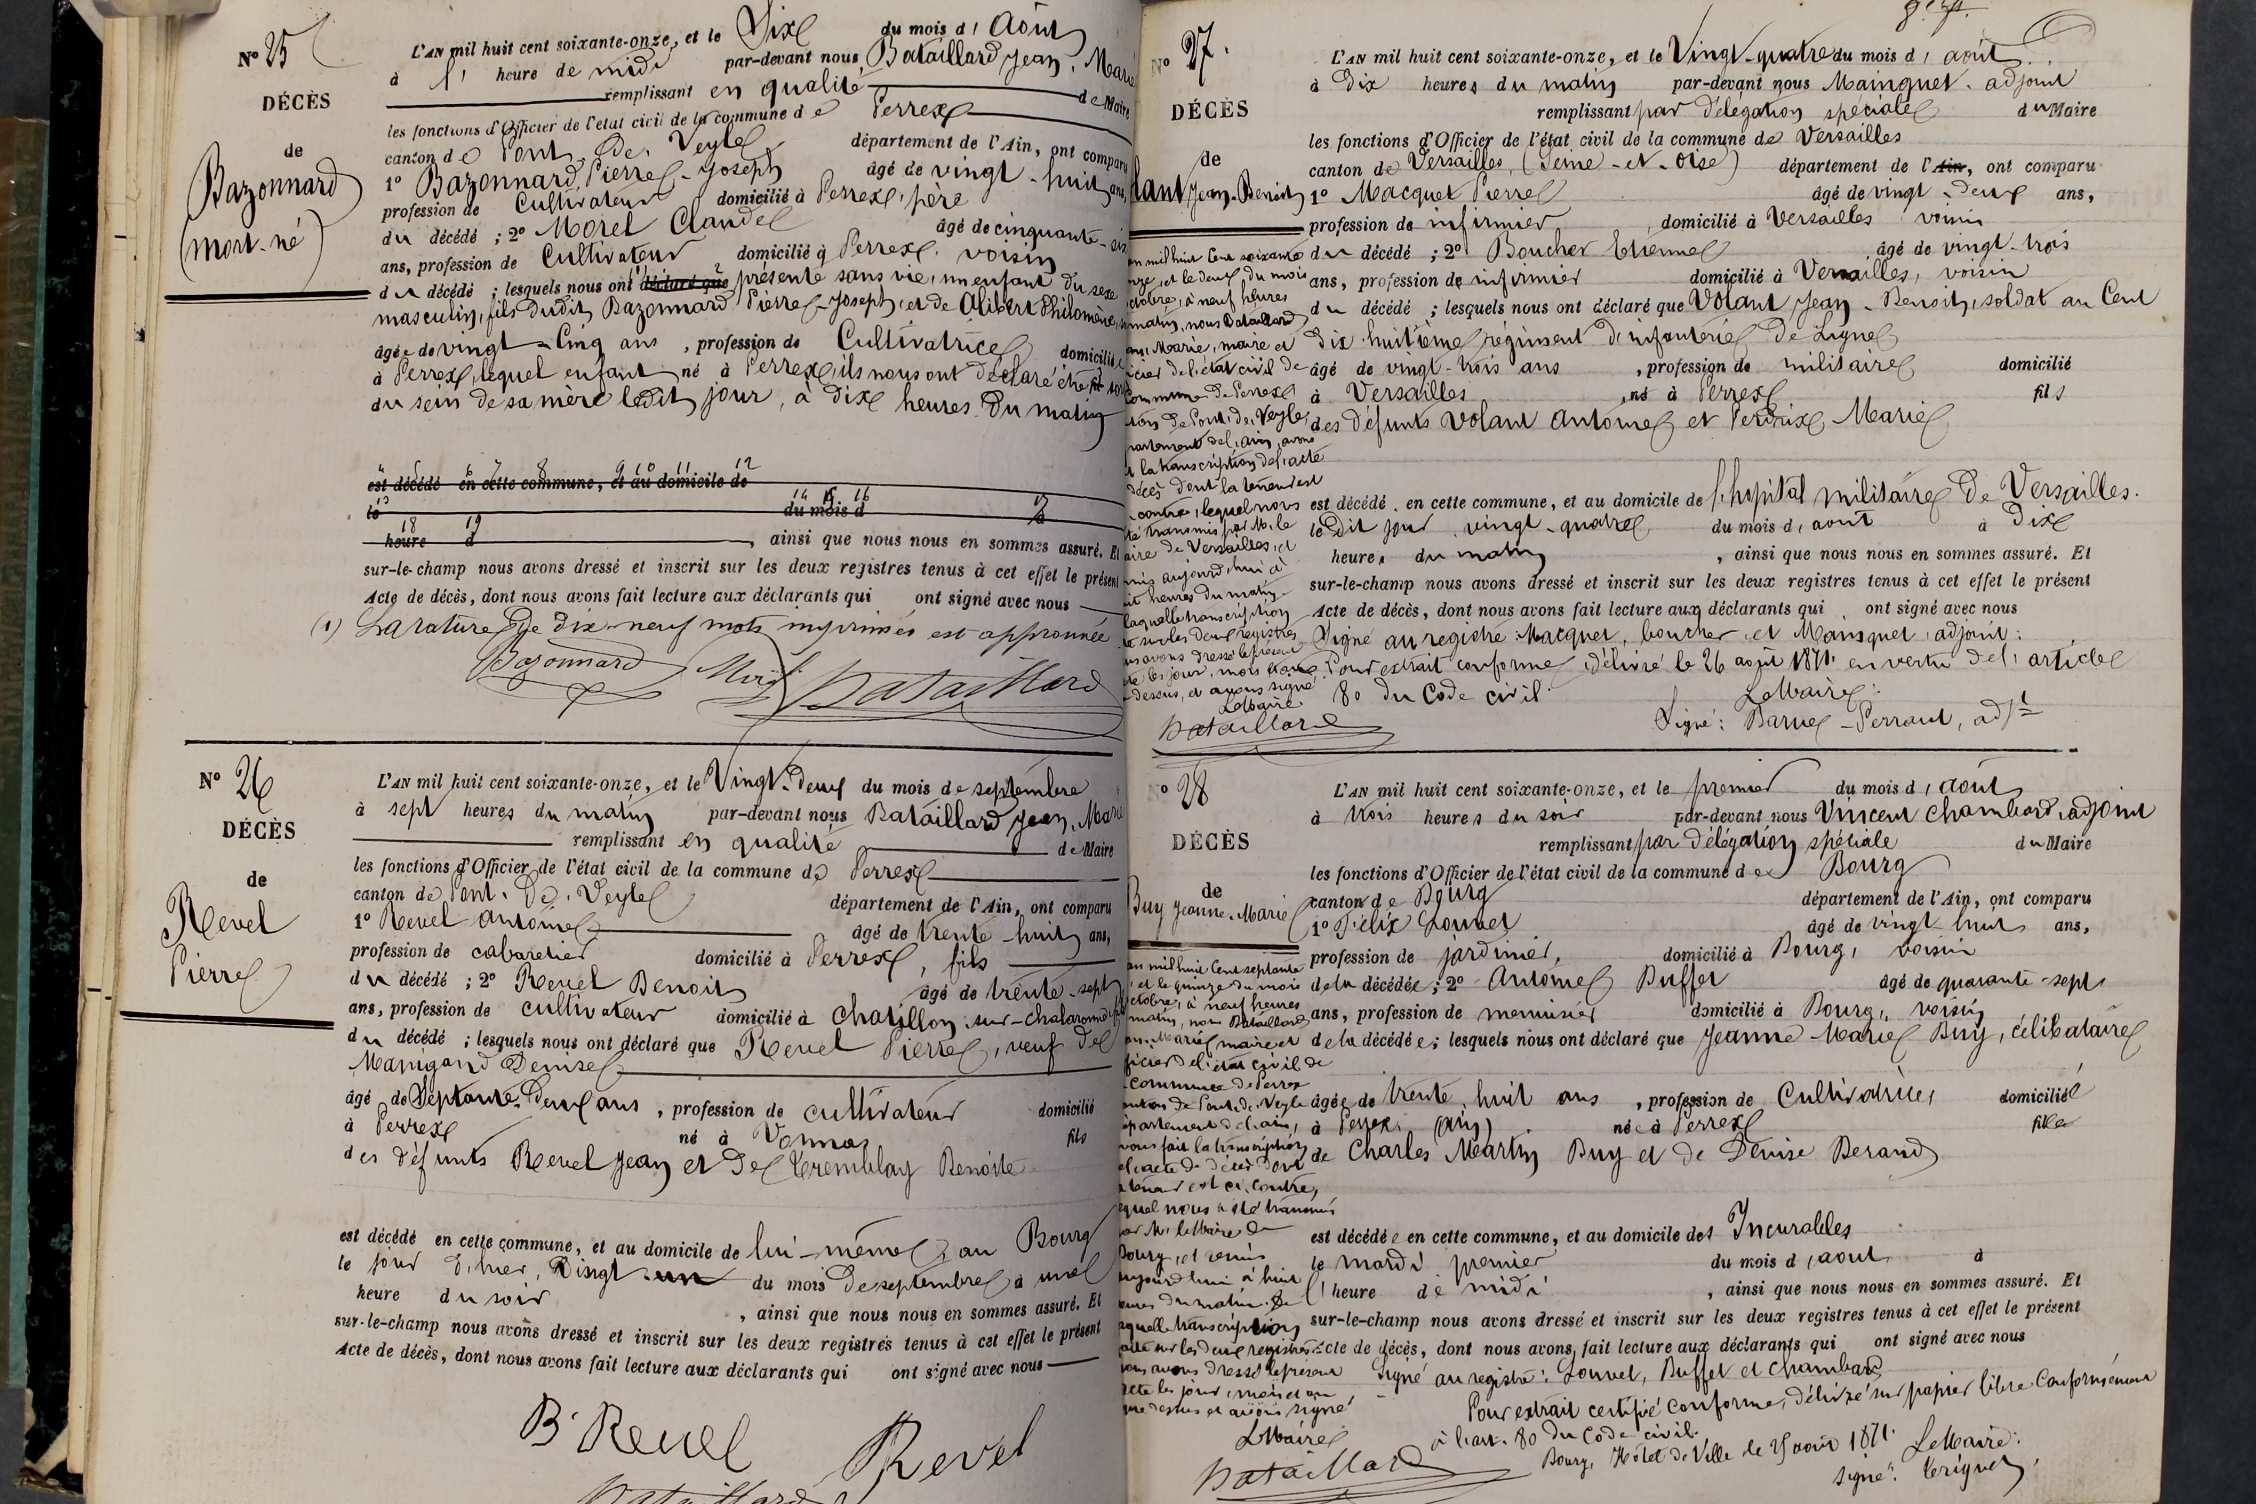 N° 25
DÉCÈS
de
Bazonnard
(mort-né)
L'AN mil huit cent soixante-onze, et le Dix du mois d'Août
à l'heure de midi par-devant nous Bataillard Jean, Marie
remplissant en qualité de Maire
les fonctions d'Officier de l'état civil de la commune de Perrex
canton de Pont-de-Veyle département de l'Ain, ont comparu
1° Bazonnard Pierre-Joseph âgé de vingt-huit ans,
profession de Cultivateur domicilié à Perrex, père
du décédé ; 2° Morel Claude âgé de cinquante-six
ans, profession de Cultivateur domicilié à Perrex, voisin
du décédé ; lesquels nous ont déclaré que présenté sans vie, un enfant du sexe
masculin, fils dudit Bazonnard Pierre-Joseph, et de Alibert Philomène,
âgée de vingt-cinq ans, profession de Cultivatrice domiciliée
à Perrex, lequel enfant né à Perrex, ils nous ont déclaré être sorti
du sein de sa mère ledit jour, à dix heures du matin
est décédé en cette commune, et au domicile de
le du mois d à
heure d , ainsi que nous nous en sommes assuré. Et
sur-le-champ nous avons dressé et inscrit sur les deux registres tenus à cet effet le présent
Acte de décès, dont nous avons fait lecture aux déclarants qui ont signé avec nous
(1) La rature de dix-neuf mots imprimés est approuvée
Bazonnard Bataillard
N° 26
DÉCÈS
de
Revel
Pierre
L'AN mil huit cent soixante-onze, et le Vingt-Deux du mois de septembre
à sept heures du matin par-devant nous Bataillard Jean, Marie
remplissant en qualité de Maire
les fonctions d'Officier de l'état civil de la commune de Perrex
canton de Pont-de-Veyle département de l'Ain, ont comparu
1° Revel Antoine âgé de trente-huit ans,
profession de cabaretier domicilié à Perrex, fils
du décédé ; 2° Revel Benoit âgé de trente-sept
ans, profession de cultivateur domicilié à Chatillon-sur-Chalaronne, fils
du décédé ; lesquels nous ont déclaré que Revel Pierre, veuf de
Manigand Denise
âgé de Septante-Deux ans, profession de cultivateur domicilié
à Perrex né à Vonnas fils
des défunts Revel Jean et De Tremblay Benoite
est décédé en cette commune, et au domicile de lui-même, au Bourg
le jour d'hier, Vingt-un du mois de septembre à une
heure du soir , ainsi que nous nous en sommes assuré. Et
sur-le-champ nous avons dressé et inscrit sur les deux registres tenus à cet effet le présent
Acte de décès, dont nous avons fait lecture aux déclarants qui ont signé avec nous
B. Revel Revel
Bataillard
N° 27.
DÉCÈS
de
Jean-Benoit
L'AN mil huit cent soixante-onze, et le Vingt-quatre du mois d'août
à Dix heures du matin par-devant nous Mainguet, adjoint
remplissant par délégation spéciale du Maire
les fonctions d'Officier de l'état civil de la commune de Versailles
canton de Versailles, (Seine-et-Oise) département de l'Ain, ont comparu
1° Macquet Pierre âgé de vingt-deux ans,
profession de infirmier, domicilié à Versailles voisin
du décédé ; 2° Boucher Etienne âgé de vingt-trois
ans, profession de infirmier domicilié à Versailles, voisin
du décédé ; lesquels nous ont déclaré que Volant Jean-Benoit, soldat au Cent
dix-huitième régiment d'infanterie de Ligne
âgé de vingt-trois ans, profession de militaire domicilié
à Versailles, né à Perrex fils
des défunts Volant Antoine et Perdrix Marie
est décédé en cette commune, et au domicile de l'hôpital militaire de Versailles.
le Dit jour vingt-quatre du mois d'août à Dix
heures du matin , ainsi que nous nous en sommes assuré. Et
sur-le-champ nous avons dressé et inscrit sur les deux registres tenus à cet effet le présent
Acte de décès, dont nous avons fait lecture aux déclarants qui ont signé avec nous
Signé au registre : Macquet, boucher, et Mainguet, adjoint :
Pour extrait conforme, délivré le 26 août 1871 en vertu de l'article
80 du Code civil.
Le Maire
Signé : Barué-Perrault, adjt
mil huit cent soixante
et le deux du mois
à neuf heures
matin, nous Bataillard
Marie, maire et
de l'état civil de
commune de Perrex
de Pont-de-Veyle,
de l'Ain, avons
la transcription de l'acte
décès dont la teneur est
contre, lequel nous
transmis par M. le
de Versailles, et
aujourd'hui à
heures du matin
laquelle transcription
sur les deux registres
avons dressé le présent
les jour, mois et an
dessus, et avons signé
Le Maire
Bataillard
N° 28
DÉCÈS
de
Buy Jeanne-Marie
L'AN mil huit cent soixante-onze, et le premier du mois d'août
à trois heures du soir par-devant nous Vincent Chambard, adjoint
remplissant par délégation spéciale du Maire
les fonctions d'Officier de l'état civil de la commune de Bourg
canton de Bourg département de l'Ain, ont comparu
1° Félix Louvet âgé de vingt huit ans,
profession de jardinier, domicilié à Bourg, voisin
de la décédée ; 2° Antoine Buffet âgé de quarante-sept
ans, profession de menuisier domicilié à Bourg, voisin
de la décédée ; lesquels nous ont déclaré que Jeanne Marie Buy, célibataire
âgée de trente-huit ans, profession de Cultivatrice, domiciliée
à Perrex, (ain) née à Perrex fille
de Charles Martin Buy et de Denise Berand
est décédée en cette commune, et au domicile des Incurables
le mardi premier du mois d'août à
l'heure de midi , ainsi que nous nous en sommes assuré. Et
sur-le-champ nous avons dressé et inscrit sur les deux registres tenus à cet effet le présent
Acte de décès, dont nous avons fait lecture aux déclarants qui ont signé avec nous
Signé au registre : Louvet, Buffet et Chambard
Pour extrait certifié conforme, délivré sur papier libre conformément
à l'art. 80 du Code civil.
Bourg, Hôtel de Ville le 25 août 1871. Le Maire :
signé :
mil huit cent septante
et le quinze du mois
à neuf heures
matin, nous Bataillard
Marie, maire et
de l'état civil de
commune de Perrex
de Pont-de-Veyle
département de l'ain,
avons fait la transcription
de l'acte de décès dont
la teneur est ci-contre,
lequel nous a été transmis
par M. le Maire de
Bourg, et remis
aujourd'hui à huit
heures du matin. De
laquelle transcription
faite sur les deux registres
nous avons dressé le présent
acte les jour, mois et an
que dessus et avons signé
Le Maire
Bataillard